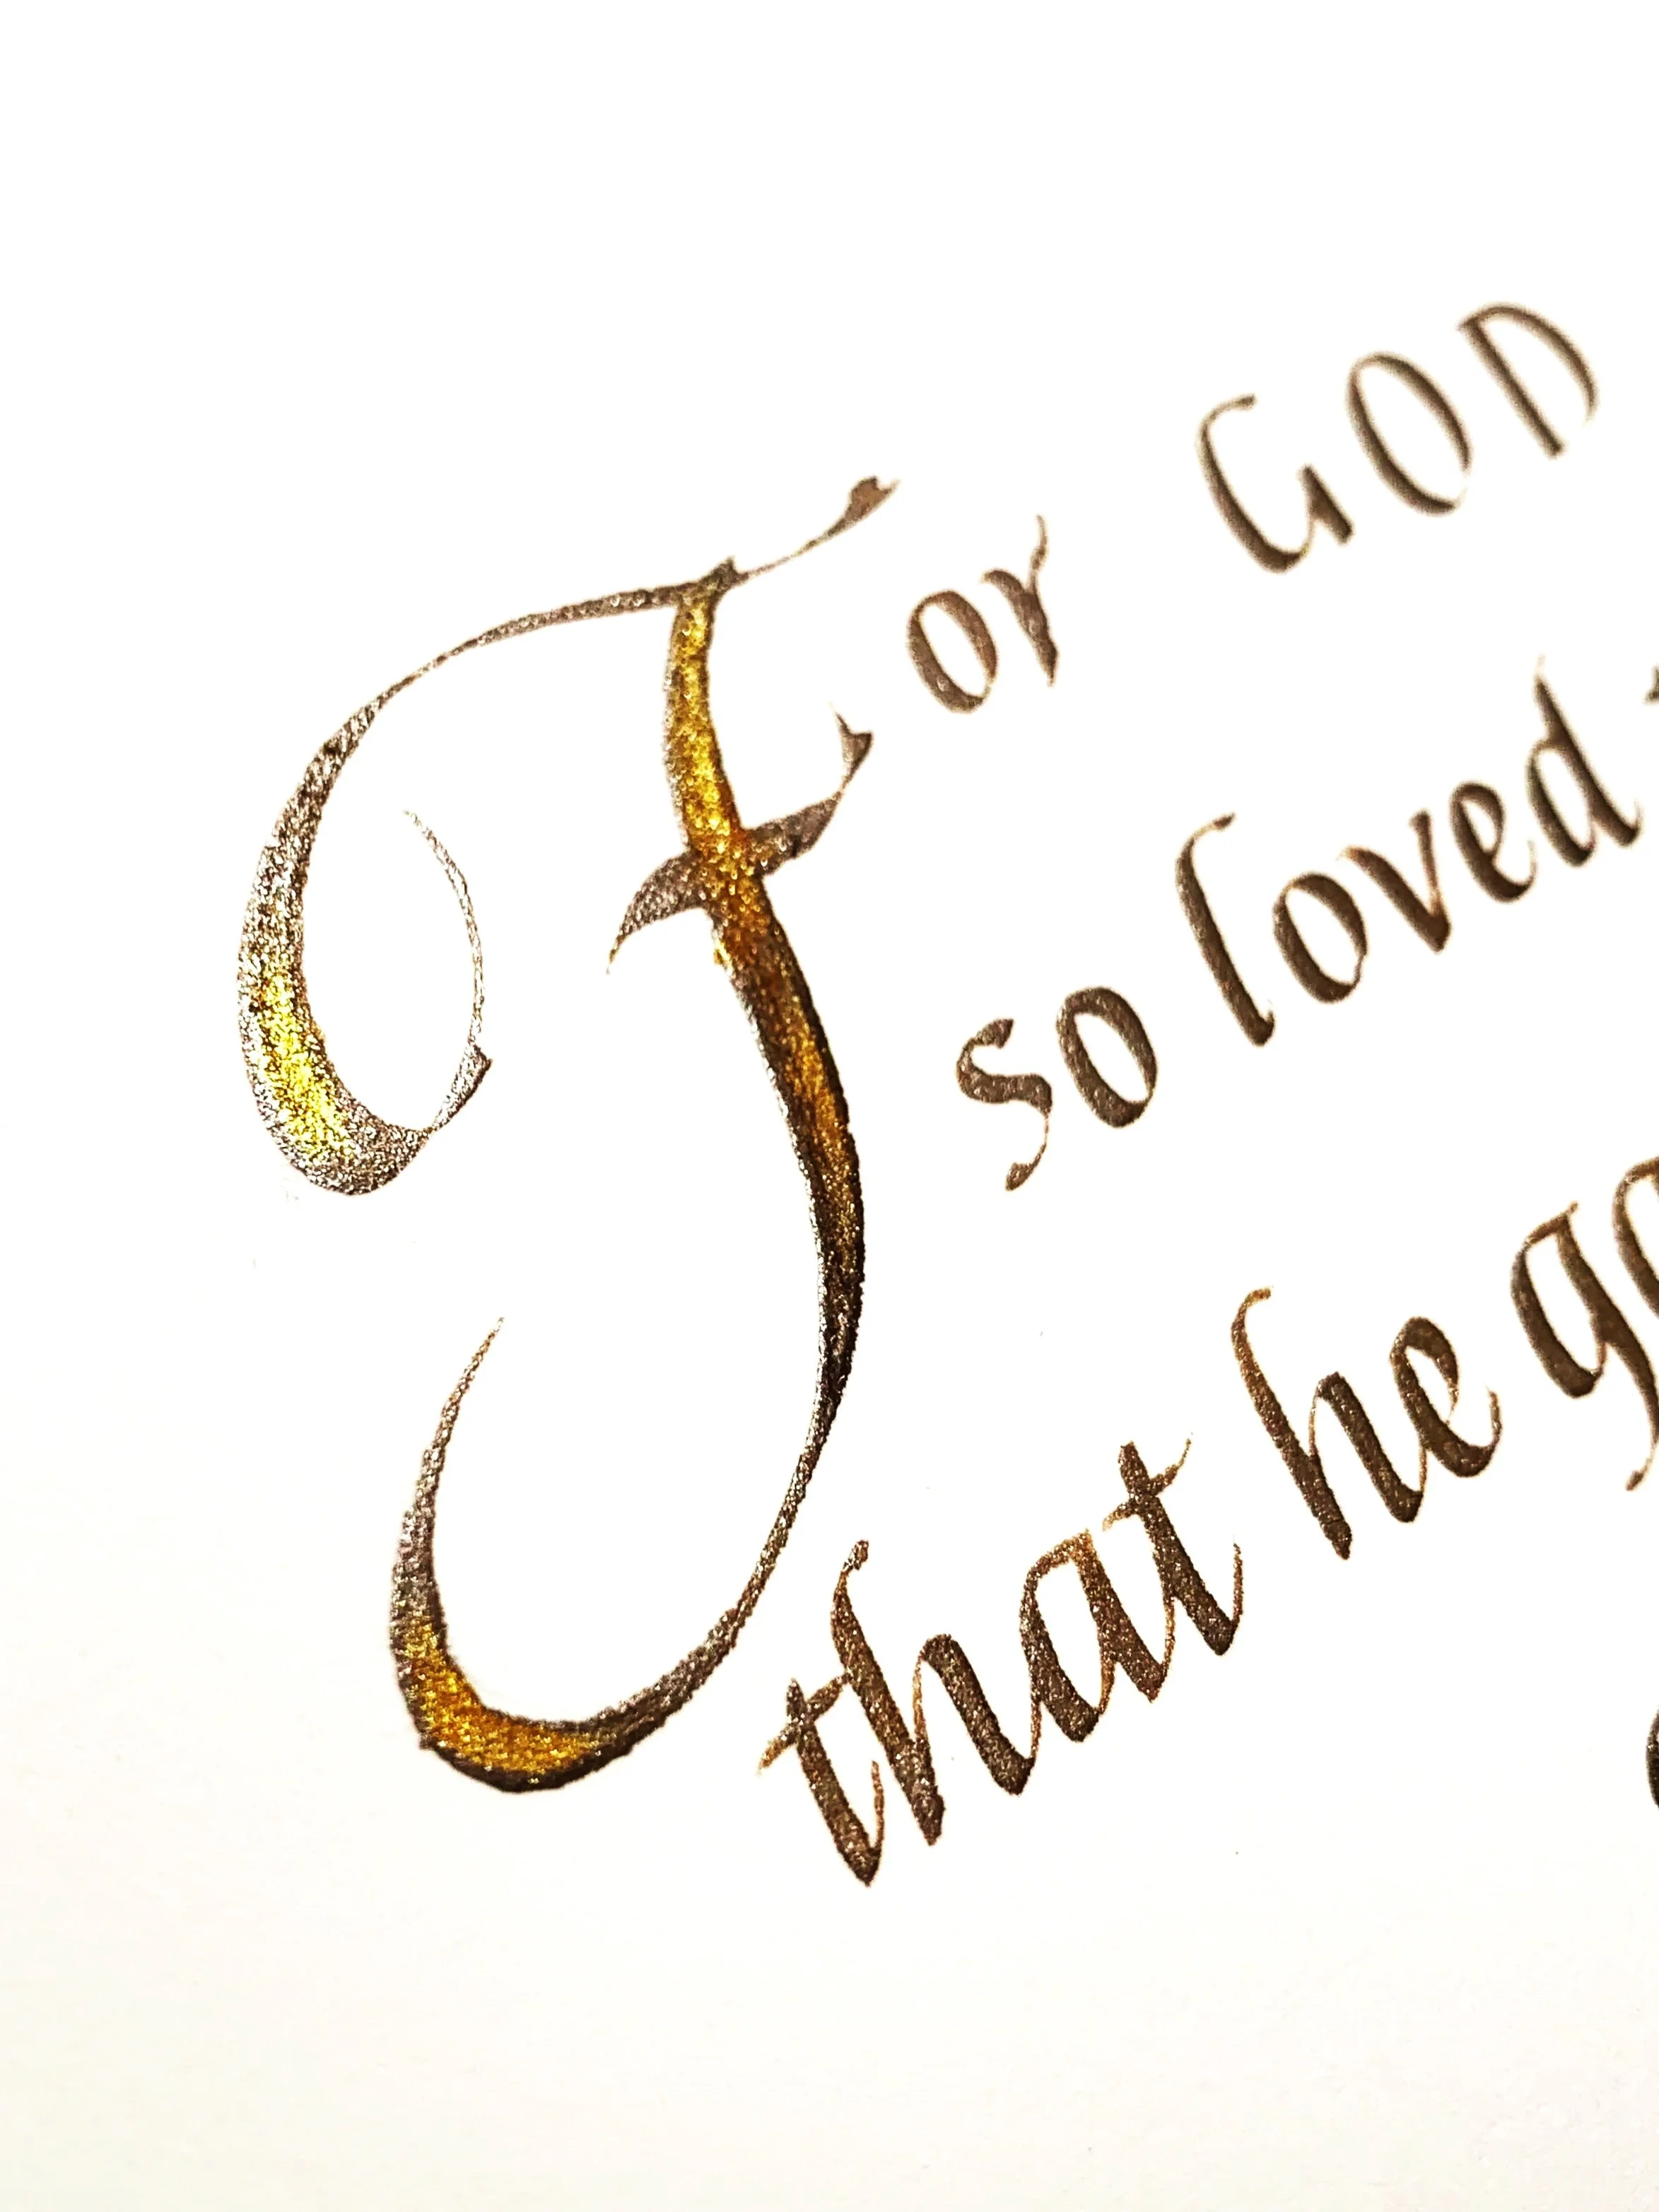 For GOD
so loved
that he